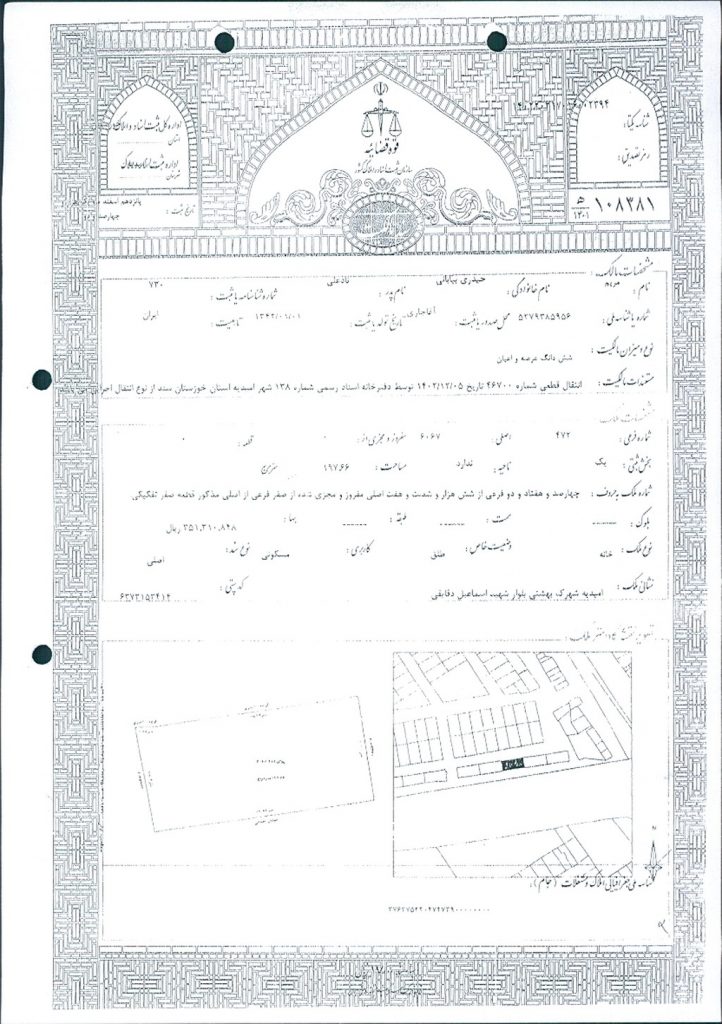 شناسه یکتا:
رمز تصدیق:
۱۰۸۳۸۱ ه
۱۴۰۱
قوه قضائیه
سازمان ثبت اسناد و املاک کشور
اداره کل ثبت اسناد و املاک
استان
اداره ثبت اسناد و املاک
تاریخ ثبت:
مشخصات مالک:
نام: نام خانوادگی: حیدری بیابانی نام پدر: نادعلی شماره شناسنامه یا ثبت: ۷۳۰
شماره یا شناسه ملی: ۵۲۷۹۳۸۵۹۵۶ محل صدور یا ثبت: آغاجاری تاریخ تولد یا ثبت: ۱۳۴۲/۰۱/۰۱ تابعیت: ایران
نوع و میزان مالکیت: شش دانگ عرصه و اعیان
مستندات مالکیت: انتقال قطعی شماره ۴۶۷۰۰ تاریخ ۱۴۰۲/۱۲/۰۵ توسط دفترخانه اسناد رسمی شماره ۱۳۸ شهر امیدیه استان خوزستان سند از نوع انتقال اجرایی
مشخصات ملک:
شماره فرعی: ۴۷۲ اصلی: ۶۰۶۷ مفروز و مجزی از: ۰ قطعه: ۰
بخش ثبتی: یک ناحیه: ندارد مساحت: ۱۹۷.۶۶ مترمربع
شماره ملک به حروف: چهارصد و هفتاد و دو فرعی از شش هزار و شصت و هفت اصلی مفروز و مجزی شده از صفر فرعی از اصلی مذکور قطعه صفر تفکیکی
بلوک: ------ سمت: ------ طبقه: ------ بها: ۳۵۱,۳۱۰,۸۴۸ ریال
نوع ملک: خانه وضعیت خاص: طلق کاربری: مسکونی نوع سند: اصلی
نشانی ملک: امیدیه شهرک بهشتی بلوار شهید اسماعیل دقایقی کد پستی: ۶۳۷۳۱۵۳۴۱۴
شناسه ملی جغرافیایی املاک و مستغلات (جام):